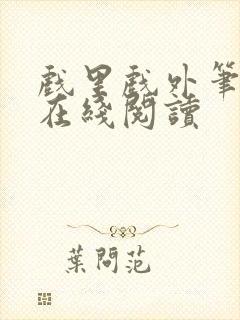 戲里戲外筆
在綫閱讀
葉問范